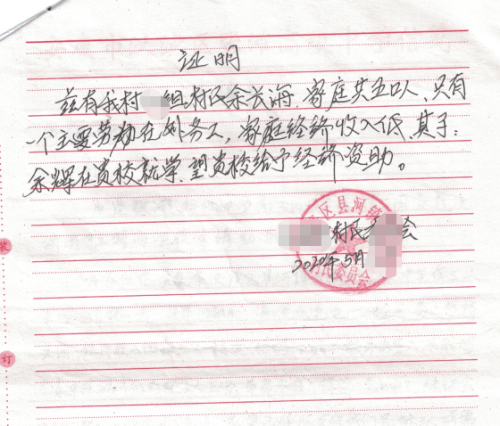 证明
兹有我村 组村民余长海，家庭共五口人、只有
一个主要劳动在外务工，家庭经济收入低，其子：
余辉在贵校就学，望贵校给予经济资助。
区县河镇
村民 会
2020年5月
委员会
订